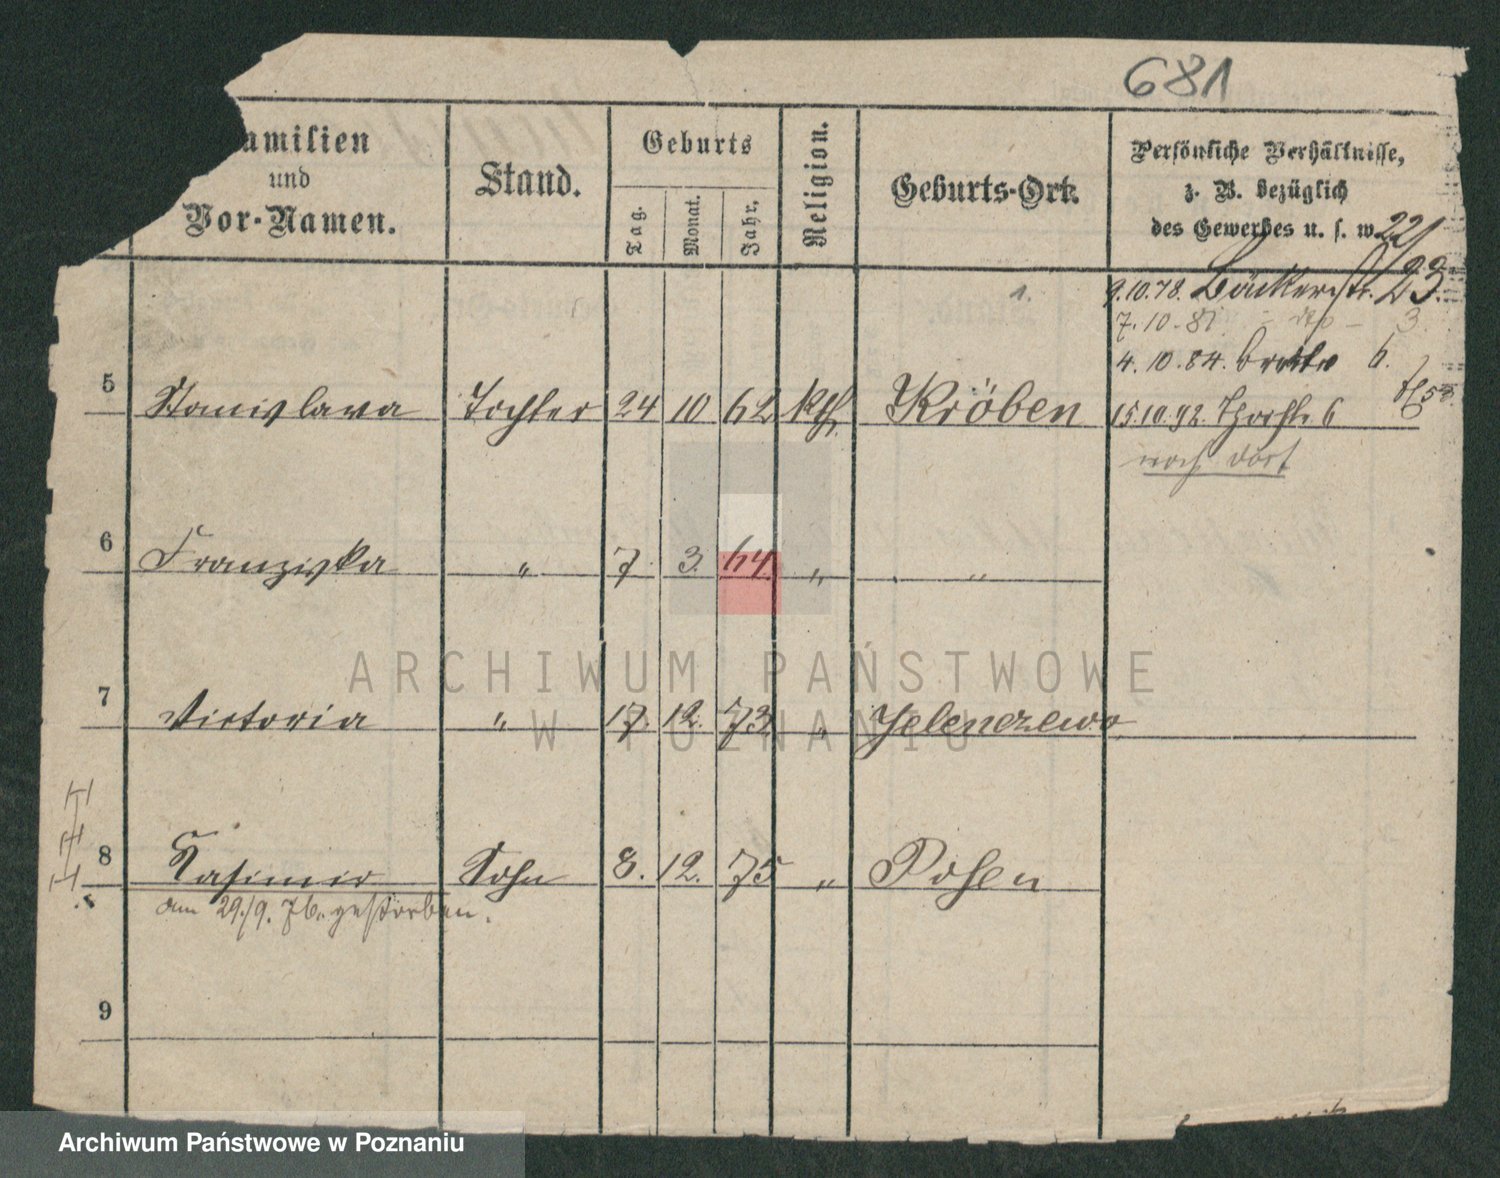 681
amilien
und
Vor-Namen.
Stand.
Geburts
Tag.
Monat.
Jahr.
Religion.
Geburts-Ort.
Persönliche Verhältnisse,
z. B. bezüglich
des Gewerbes u. s. w.
22/23.
9.10.78. Bäckerstr.
7.10.81. - 3
4.10.84. 6.
5 Stanislava Tochter 24 10 62 kth. Kröben 15.10.92. 6
noch dort
6 Franziska " 7. 3. 64. " "
7 Victoria " 17. 12. 73. " Jelenczewo
8 Kasimir Sohn 8. 12. 75 " Posen
am 29./9. 76. gestorben.
9
ARCHIWUM PAŃSTWOWE
W POZNANIU
Archiwum Państwowe w Poznaniu